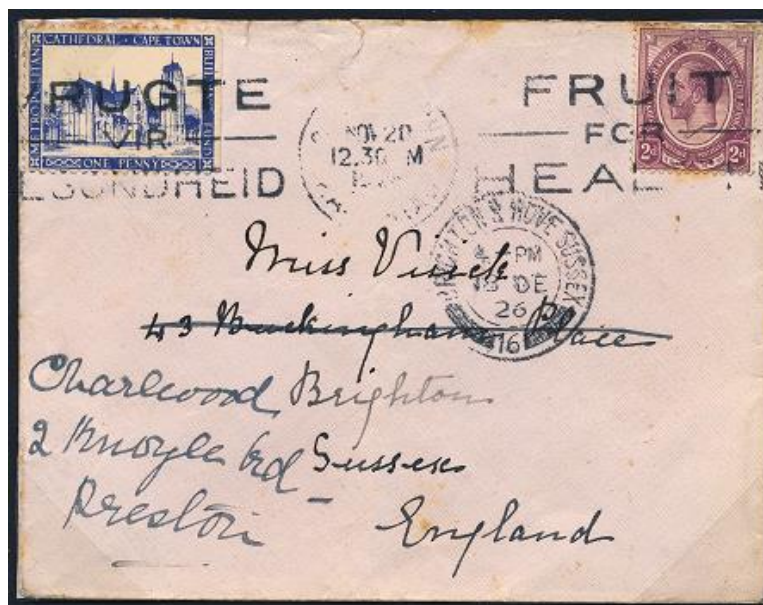 CATHEDRAL · CAPE TOWN
METROPOLITAN
BUILDING FUND
ONE PENNY
RUGTE
VIR
ESONDHEID
NOV 20
12.30 M
FRUIT
FOR
HEAL
2d 2d
BRIGHTON & HOVE SUSSEX
PM
DE
26
16
Miss
43 Buckingham Place
Charlwood Brighton
2 Knoyle Rd Sussex
Preston England